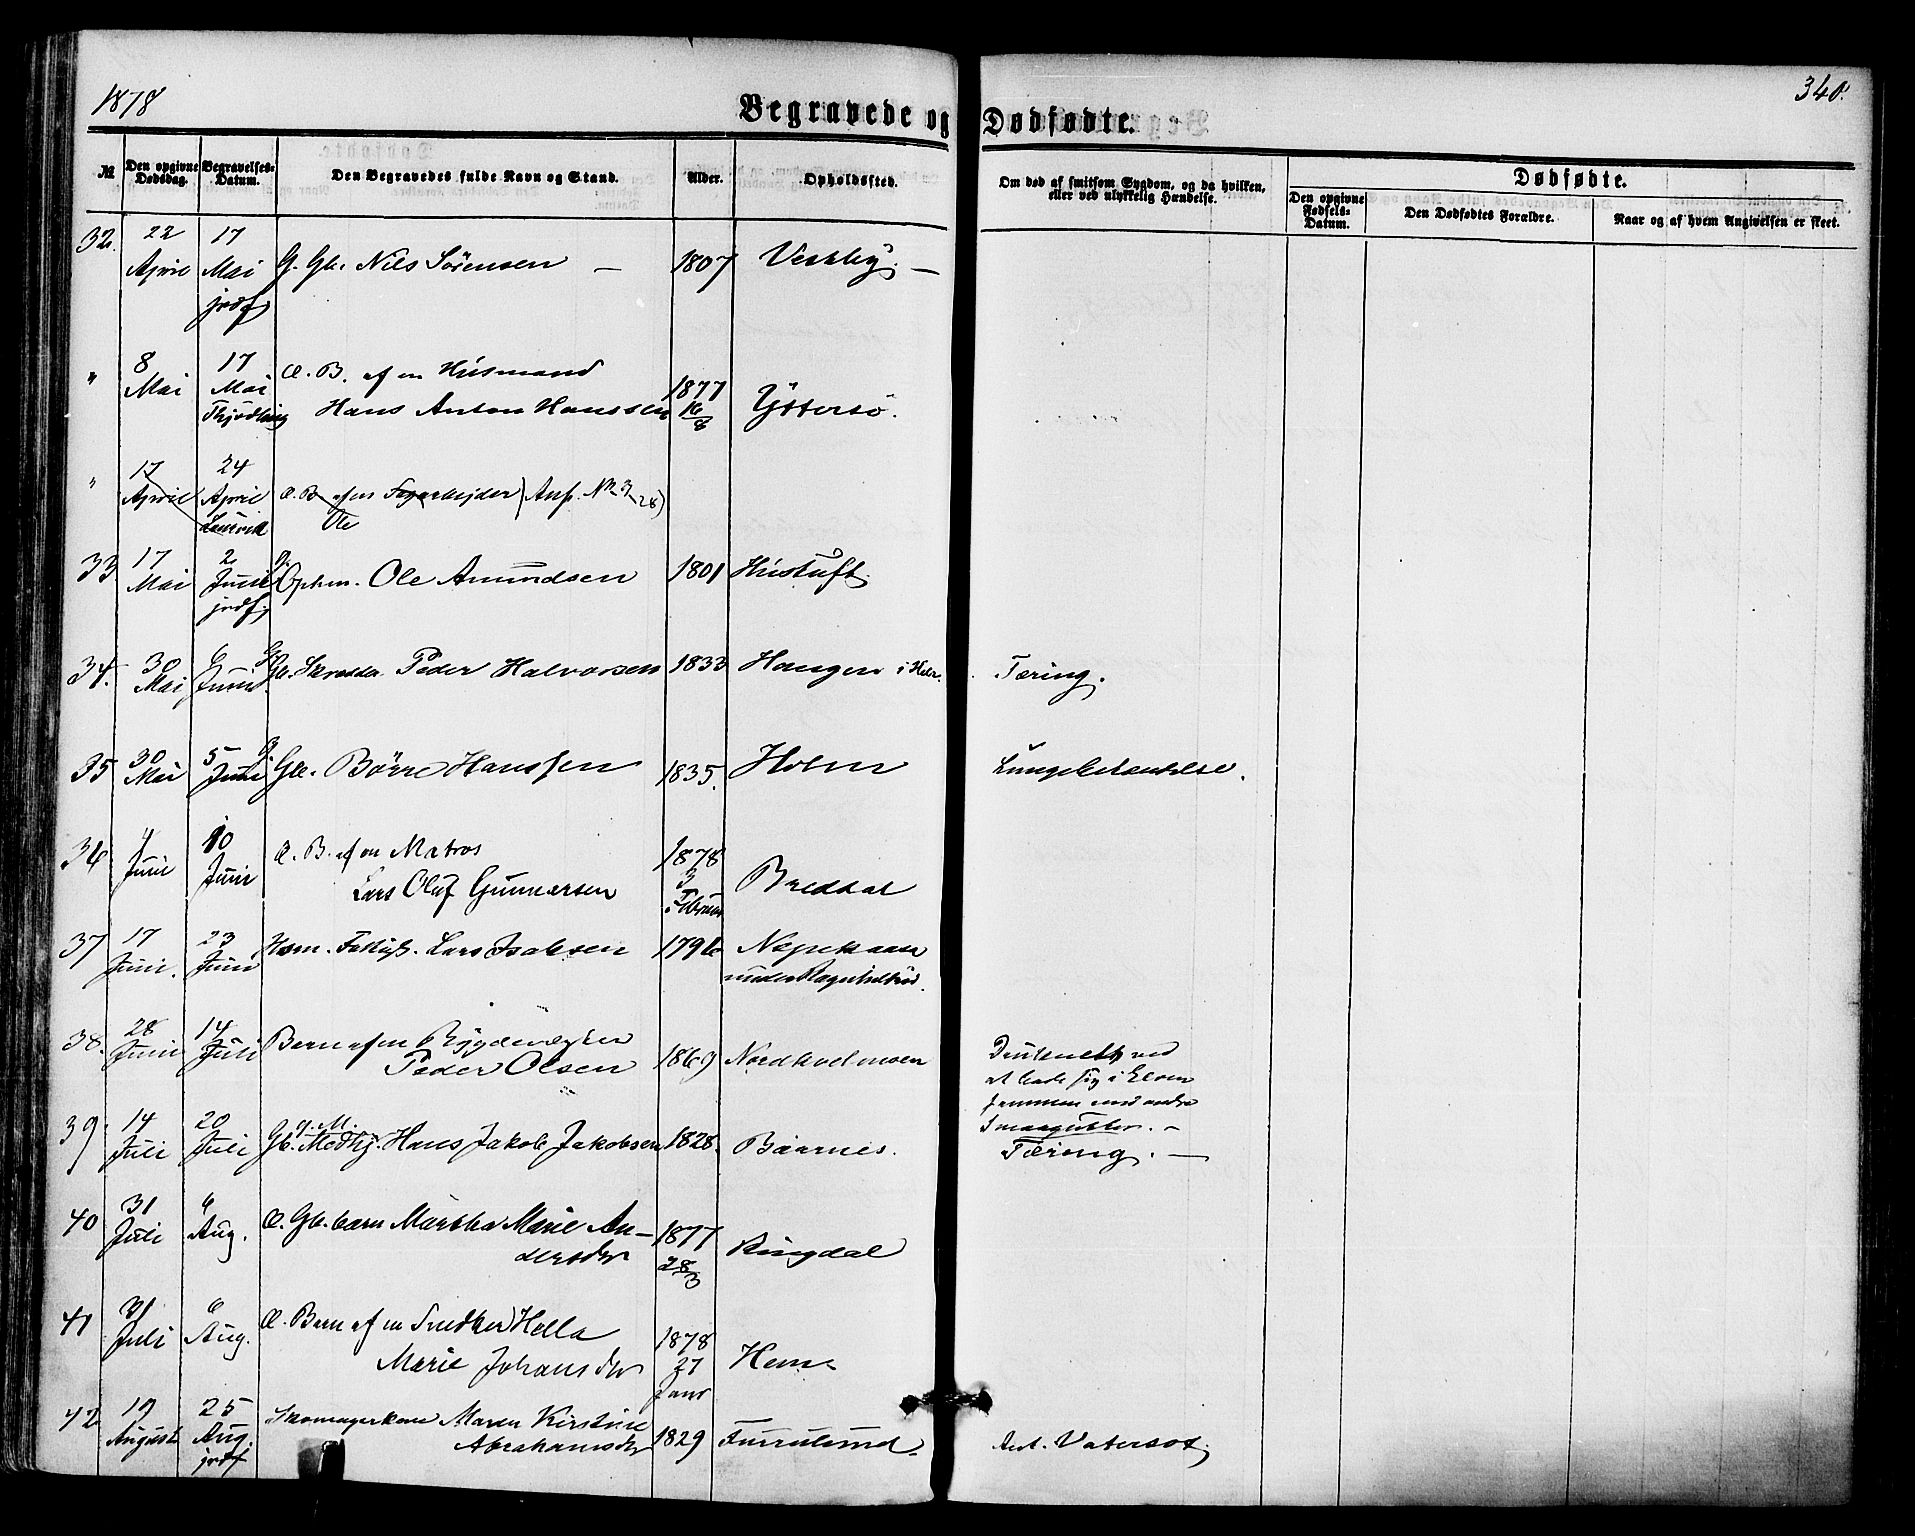 1878
Begravede og Dødfødte.
340.
№
Den opgivne Dødsdag.
Begravelses-Datum.
Den Begravedes fulde Navn og Stand.
Alder.
Opholdssted.
Om død af smitsom Sygdom, og da hvilken, eller ved ulykkelig Hændelse.
Dødfødte.
Den opgivne Fødsels-Datum.
Den Dødfødtes Forældre.
Naar og af hvem Angivelsen er skeet.
32. 22 April 17 Mai jrdf. G. Gbr. Nils Sörensen — 1807 —
" 8 Mai 17 Mai Thjødling Æ. B. af en Husmand
Hans Anton Hanssen 1877 16/8 Yttersö.
" 17 April 24 April Laurvik Æ. B. af en (Anf. № 28)
Ole
33 17 Mai 2 Juni jrdf. Ole Amundsen 1801 Hustuft.
34. 30 Mai 6 Juni Gbr. Skrædder Peder Halvorsen 1833 Haugen i Holm. Tæring.
35 30 Mai 5 Juni G. Gbr. Börre Hanssen 1835. Holm Lungebetændelse.
36 4 Juni 10 Juni Æ. B. af en Matros
Lars Oluf Gunnarsen 1878 3 Februar Breddal
37 17 Juni. 23 Juni Lars Isaksen 1796
under
38. 28 Juni 14 Juli Barn af en
Peder Olsen 1869 Nordholmsen Druknet ved
at bade sig i Elven
sammen med andre
Smaagutter. —
39. 14 Juli 20 Juli g. M. Hans Jakob Jakobsen 1828. Baarnes. Tæring. —
40 31 Juli 6 Aug. Æ. Gbr. barn Martha Marie An-
dersdtr 1877 28/3 Ringdal
41 31 Juli 6 Aug. Æ. Barn af en Snedker Hella
Marie Johansdtr 1878 27 Janr Hem
42 19 August 25 Aug. jrdf Skomagerkone Maren Kirstine
Abrahamsdtr 1829 Furrulund. Vatersot.